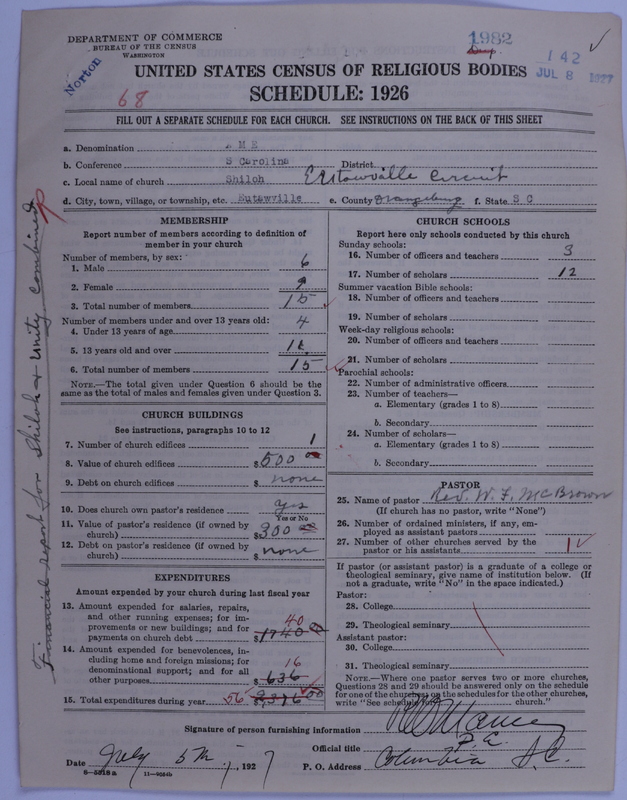 DEPARTMENT OF COMMERCE
BUREAU OF THE CENSUS
WASHINGTON
Norton
68
1982
142
JUL 8 1927
UNITED STATES CENSUS OF RELIGIOUS BODIES
SCHEDULE: 1926
FILL OUT A SEPARATE SCHEDULE FOR EACH CHURCH. SEE INSTRUCTIONS ON THE BACK OF THIS SHEET
a. Denomination A M E
b. Conference S Carolina District
c. Local name of church Shiloh Eutawville Circuit
d. City, town, village, or township, etc. Eutawville e. County Orangeburg f. State S C
MEMBERSHIP
Report number of members according to definition of member in your church
Number of members, by sex:
1. Male 6
2. Female 9
3. Total number of members 15
Number of members under and over 13 years old:
4. Under 13 years of age 4
5. 13 years old and over 11
6. Total number of members 15
NOTE.—The total given under Question 6 should be the same as the total of males and females given under Question 3.
CHURCH BUILDINGS
See instructions, paragraphs 10 to 12
7. Number of church edifices 1
8. Value of church edifices $500 00
9. Debt on church edifices $ none
10. Does church own pastor's residence yes
Yes or No
11. Value of pastor's residence (if owned by church) $300 00
12. Debt on pastor's residence (if owned by church) $ none
EXPENDITURES
Amount expended by your church during last fiscal year
13. Amount expended for salaries, repairs, and other running expenses; for improvements or new buildings; and for payments on church debt $1740 00 40
14. Amount expended for benevolences, including home and foreign missions; for denominational support; and for all other purposes $ 636 16
15. Total expenditures during year 56 $2,376 00
Financial report for Shiloh & Unity Combined
CHURCH SCHOOLS
Report here only schools conducted by this church
Sunday schools:
16. Number of officers and teachers 3
17. Number of scholars 12
Summer vacation Bible schools:
18. Number of officers and teachers
19. Number of scholars
Week-day religious schools:
20. Number of officers and teachers
21. Number of scholars
Parochial schools:
22. Number of administrative officers
23. Number of teachers—
a. Elementary (grades 1 to 8)
b. Secondary
24. Number of scholars—
a. Elementary (grades 1 to 8)
b. Secondary
PASTOR
25. Name of pastor Rev. W. F. McBrown
(If church has no pastor, write "None")
26. Number of ordained ministers, if any, employed as assistant pastors
27. Number of other churches served by the pastor or his assistants 1
If pastor (or assistant pastor) is a graduate of a college or theological seminary, give name of institution below. (If not a graduate, write "No" in the space indicated.)
Pastor:
28. College
29. Theological seminary
Assistant pastor:
30. College
31. Theological seminary
NOTE.—Where one pastor serves two or more churches, Questions 28 and 29 should be answered only on the schedule for one of the churches; on the schedules for the other churches, write "See schedule for church."
Signature of person furnishing information
Official title P. E.
Date July 5th, 1927 P. O. Address Columbia S.C.
8—5218a 11—9024b